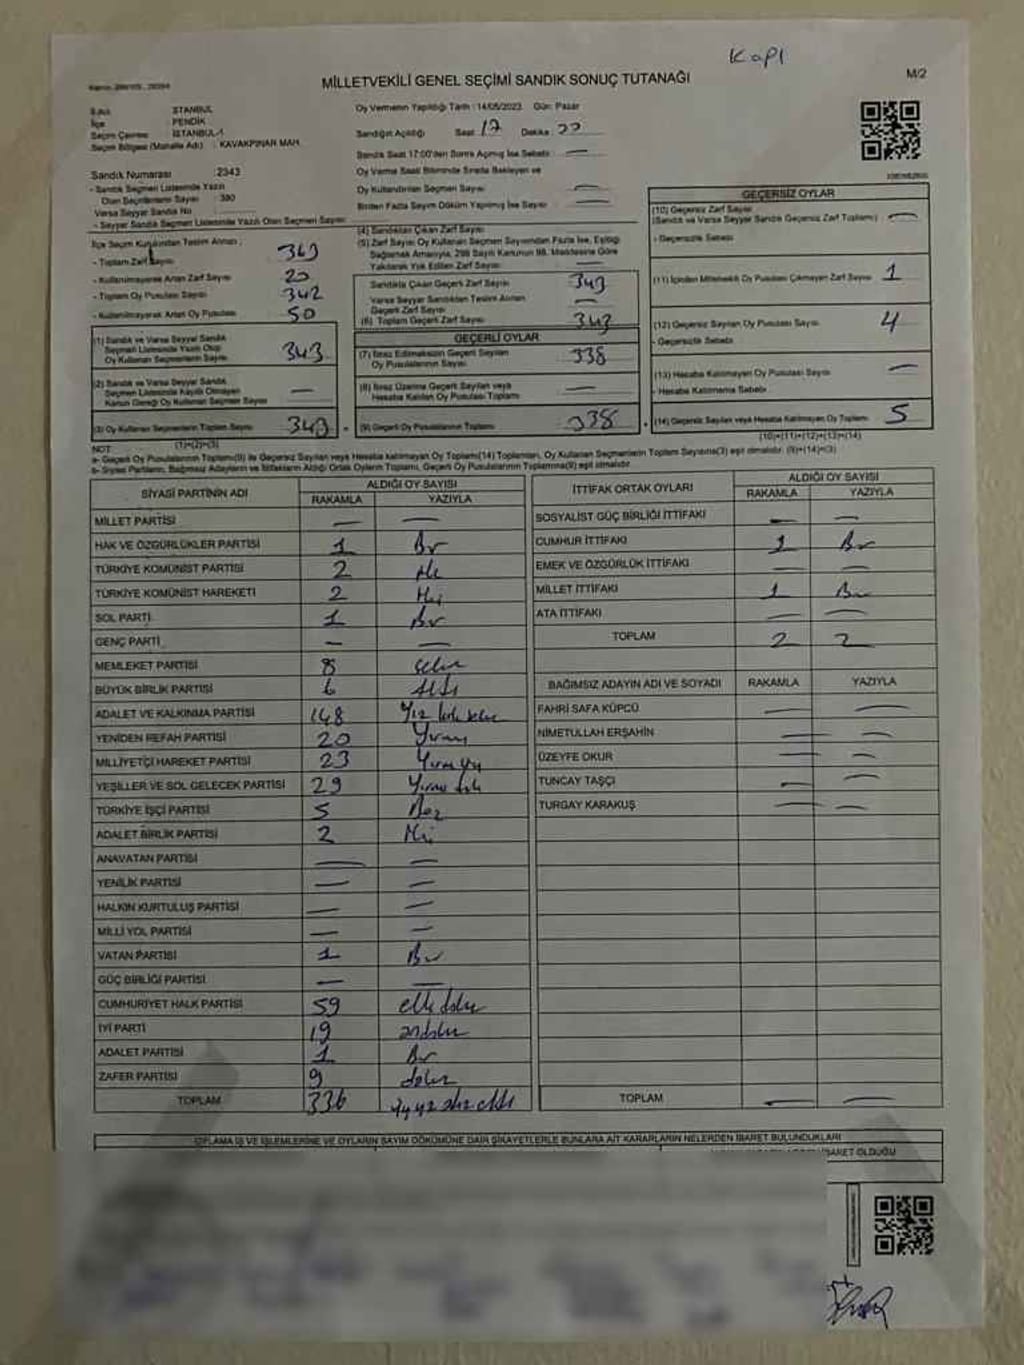 Kapı
MİLLETVEKİLİ GENEL SEÇİMİ SANDIK SONUÇ TUTANAĞI
M/2
İli : İSTANBUL
İlçe : PENDİK
Seçim Çevresi : İSTANBUL-1
Seçim Bölgesi (Mahalle Adı) : KAVAKPINAR MAH.
Oy Vermenin Yapıldığı Tarih : 14/05/2023 Gün: Pazar
Sandığın Açıldığı Saat 17 Dakika 22
Sandık Saat 17:00'den Sonra Açılmış İse Sebebi : —
Oy Verme Saati Bitiminde Sırada Bekleyen ve
Oy Kullandırılan Seçmen Sayısı : —
Birden Fazla Sayım Döküm Yapılmış İse Sayısı : —
Sandık Numarası : 2343
- Sandık Seçmen Listesinde Yazılı
Olan Seçmenlerin Sayısı : 380
Varsa Seyyar Sandık No :
- Seyyar Sandık Seçmen Listesinde Yazılı Olan Seçmen Sayısı:
İlçe Seçim Kurulundan Teslim Alınan ;
- Toplam Zarf Sayısı 363
- Kullanılmayarak Artan Zarf Sayısı 20
- Toplam Oy Pusulası Sayısı 342
- Kullanılmayarak Artan Oy Pusulası 50
(1) Sandık ve Varsa Seyyar Sandık
Seçmen Listesinde Yazılı Olup
Oy Kullanan Seçmenlerin Sayısı 343
(2) Sandık ve Varsa Seyyar Sandık
Seçmen Listesinde Kayıtlı Olmayan
Kanun Gereği Oy Kullanan Seçmen Sayısı —
(3) Oy Kullanan Seçmenlerin Toplam Sayısı 343
(1)+(2)=(3)
(4) Sandıktan Çıkan Zarf Sayısı
(5) Zarf Sayısı Oy Kullanan Seçmen Sayısından Fazla İse, Eşitliği
Sağlamak Amacıyla, 298 Sayılı Kanunun 98. Maddesine Göre
Yakılarak Yok Edilen Zarf Sayısı —
Sandıkta Çıkan Geçerli Zarf Sayısı 343
Varsa Seyyar Sandıktan Teslim Alınan
Geçerli Zarf Sayısı —
(6) Toplam Geçerli Zarf Sayısı 343
GEÇERLİ OYLAR
(7) İtiraz Edilmeksizin Geçerli Sayılan
Oy Pusulalarının Sayısı 338
(8) İtiraz Üzerine Geçerli Sayılan veya
Hesaba Katılan Oy Pusulası Toplamı —
(9) Geçerli Oy Pusulalarının Toplamı 338
GEÇERSİZ OYLAR
(10) Geçersiz Zarf Sayısı
(Sandık ve Varsa Seyyar Sandık Geçersiz Zarf Toplamı) —
- Geçersizlik Sebebi
(11) İçinden Milletvekili Oy Pusulası Çıkmayan Zarf Sayısı 1
(12) Geçersiz Sayılan Oy Pusulası Sayısı 4
- Geçersizlik Sebebi
(13) Hesaba Katılmayan Oy Pusulası Sayısı —
- Hesaba Katılmama Sebebi
(14) Geçersiz Sayılan veya Hesaba Katılmayan Oy Toplamı 5
(10)+(11)+(12)+(13)=(14)
NOT :
a- Geçerli Oy Pusulalarının Toplamı(9) ile Geçersiz Sayılan veya Hesaba Katılmayan Oy Toplamı(14) Toplamları, Oy Kullanan Seçmenlerin Toplam Sayısına(3) eşit olmalıdır. (9)+(14)=(3)
b- Siyasi Partilerin, Bağımsız Adayların ve İttifakların Aldığı Ortak Oyların Toplamı, Geçerli Oy Pusulalarının Toplamına(9) eşit olmalıdır.
SİYASİ PARTİNİN ADI ALDIĞI OY SAYISI
RAKAMLA YAZIYLA
MİLLET PARTİSİ — —
HAK VE ÖZGÜRLÜKLER PARTİSİ 1 Bir
TÜRKİYE KOMÜNİST PARTİSİ 2 iki
TÜRKİYE KOMÜNİST HAREKETİ 2 iki
SOL PARTİ 1 Bir
GENÇ PARTİ — —
MEMLEKET PARTİSİ 8 sekiz
BÜYÜK BİRLİK PARTİSİ 6 Altı
ADALET VE KALKINMA PARTİSİ 148 Yüz kırk sekiz
YENİDEN REFAH PARTİSİ 20 Yirmi
MİLLİYETÇİ HAREKET PARTİSİ 23 Yirmi üç
YEŞİLLER VE SOL GELECEK PARTİSİ 29 Yirmi dokuz
TÜRKİYE İŞÇİ PARTİSİ 5 Beş
ADALET BİRLİK PARTİSİ 2 iki
ANAVATAN PARTİSİ — —
YENİLİK PARTİSİ — —
HALKIN KURTULUŞ PARTİSİ — —
MİLLİ YOL PARTİSİ — —
VATAN PARTİSİ 1 Bir
GÜÇ BİRLİĞİ PARTİSİ — —
CUMHURİYET HALK PARTİSİ 59 elli dokuz
İYİ PARTİ 19 on dokuz
ADALET PARTİSİ 1 Bir
ZAFER PARTİSİ 9 dokuz
TOPLAM 336 üç yüz otuz altı
İTTİFAK ORTAK OYLARI ALDIĞI OY SAYISI
RAKAMLA YAZIYLA
SOSYALİST GÜÇ BİRLİĞİ İTTİFAKI — —
CUMHUR İTTİFAKI 1 Bir
EMEK VE ÖZGÜRLÜK İTTİFAKI — —
MİLLET İTTİFAKI 1 Bir
ATA İTTİFAKI — —
TOPLAM 2 2
BAĞIMSIZ ADAYIN ADI VE SOYADI RAKAMLA YAZIYLA
FAHRİ SAFA KÜPCÜ — —
NİMETULLAH ERŞAHİN — —
ÜZEYFE OKUR — —
TUNCAY TAŞÇI — —
TURGAY KARAKUŞ — —
TOPLAM — —
OYLAMA İŞ VE İŞLEMLERİNE VE OYLARIN SAYIM DÖKÜMÜNE DAİR ŞİKAYETLERLE BUNLARA AİT KARARLARIN NELERDEN İBARET BULUNDUKLARI
İBARET OLDUĞU